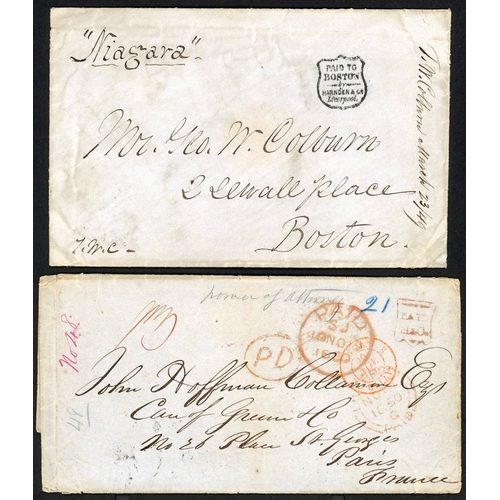 "Niagara"
PAID TO
BOSTON
by
HARNDEN & Co
Liverpool.
March 23/49
Mr. Geo. W. Colburn
2 Sewall place
Boston.
T.W.C -
power of attorney
21
No 48.
PAID
PD
John Hoffman Collamore Esqr
Care of Green & Co
No 26 Place St. Georges
Paris
France
48